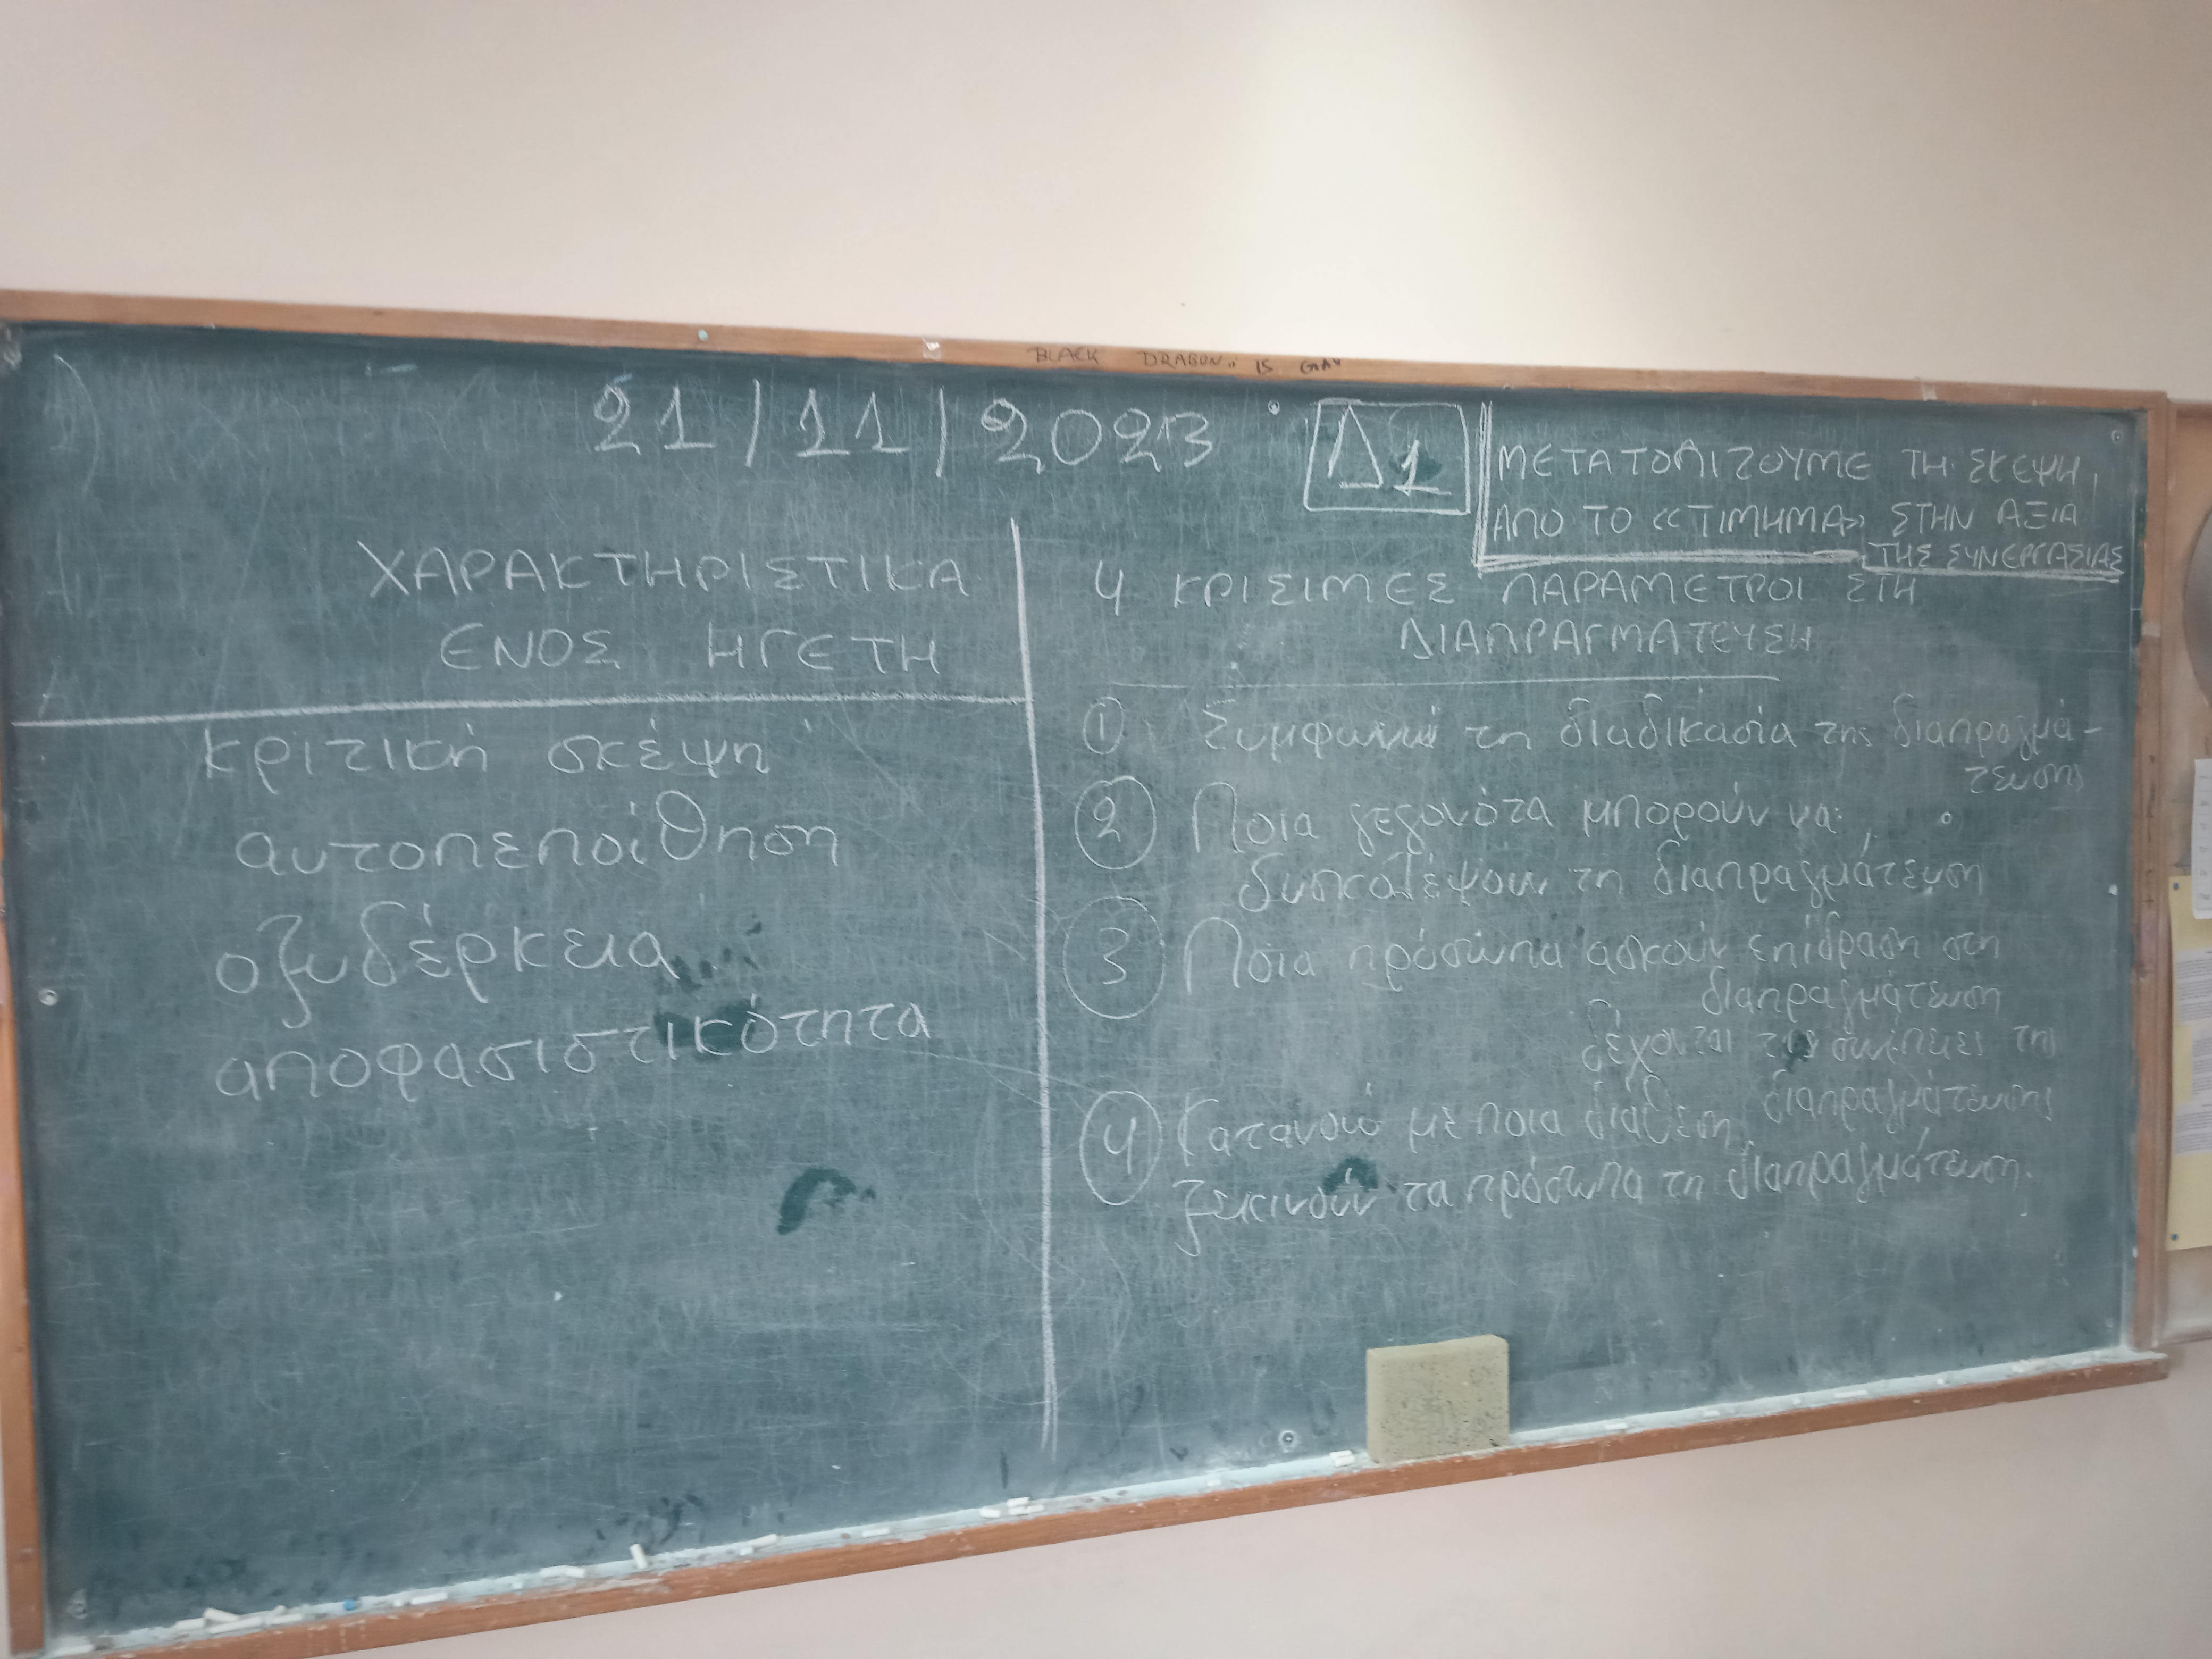 BLACK DRAGON IS GAY
21/11/2023
Δ1
ΜΕΤΑΤΟΠΙΖΟΥΜΕ ΤΗ ΣΚΕΨΗ
ΑΠΟ ΤΟ «ΤΙΜΗΜΑ» ΣΤΗΝ ΑΞΙΑ
ΤΗΣ ΣΥΝΕΡΓΑΣΙΑΣ
ΧΑΡΑΚΤΗΡΙΣΤΙΚΑ
ΕΝΟΣ ΗΓΕΤΗ
κριτική σκέψη
αυτοπεποίθηση
οξυδέρκεια
αποφασιστικότητα
4 ΚΡΙΣΙΜΕΣ ΠΑΡΑΜΕΤΡΟΙ ΣΤΗ
ΔΙΑΠΡΑΓΜΑΤΕΥΣΗ
① Συμφωνώ τη διαδικασία της διαπραγμά-
τευσης
② Ποια γεγονότα μπορούν να
δυσκολέψουν τη διαπραγμάτευση
③ Ποια πρόσωπα ασκούν επίδραση στη
διαπραγμάτευση
δέχονται τις συνέπειες της
διαπραγμάτευσης
④ Κατανοώ με ποια διάθεση
ξεκινούν τα πρόσωπα τη διαπραγμάτευση.